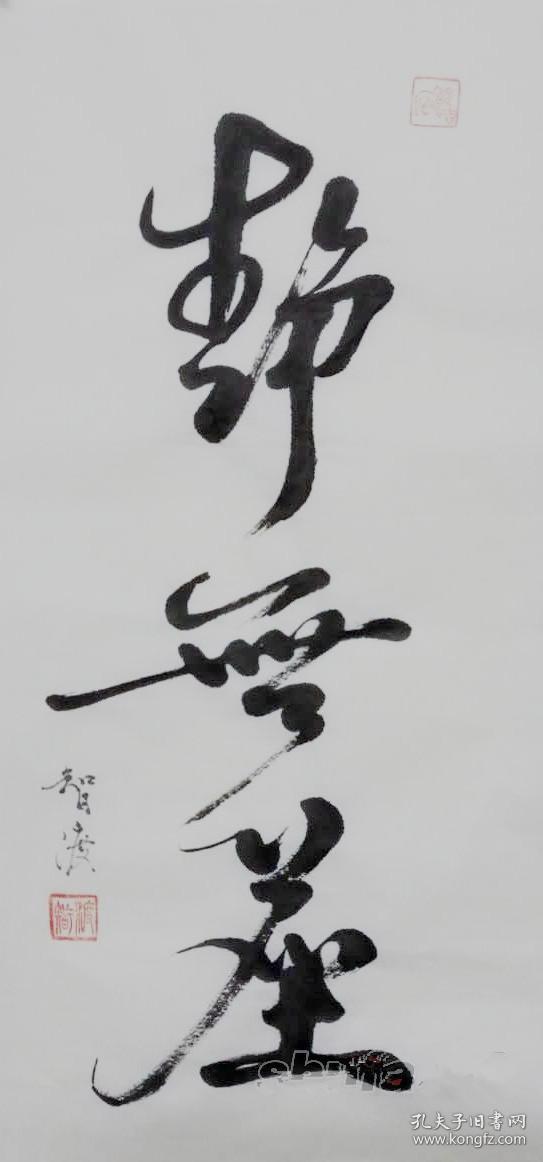 靜
無
塵
智
孔夫子旧书网
www.kongfz.com